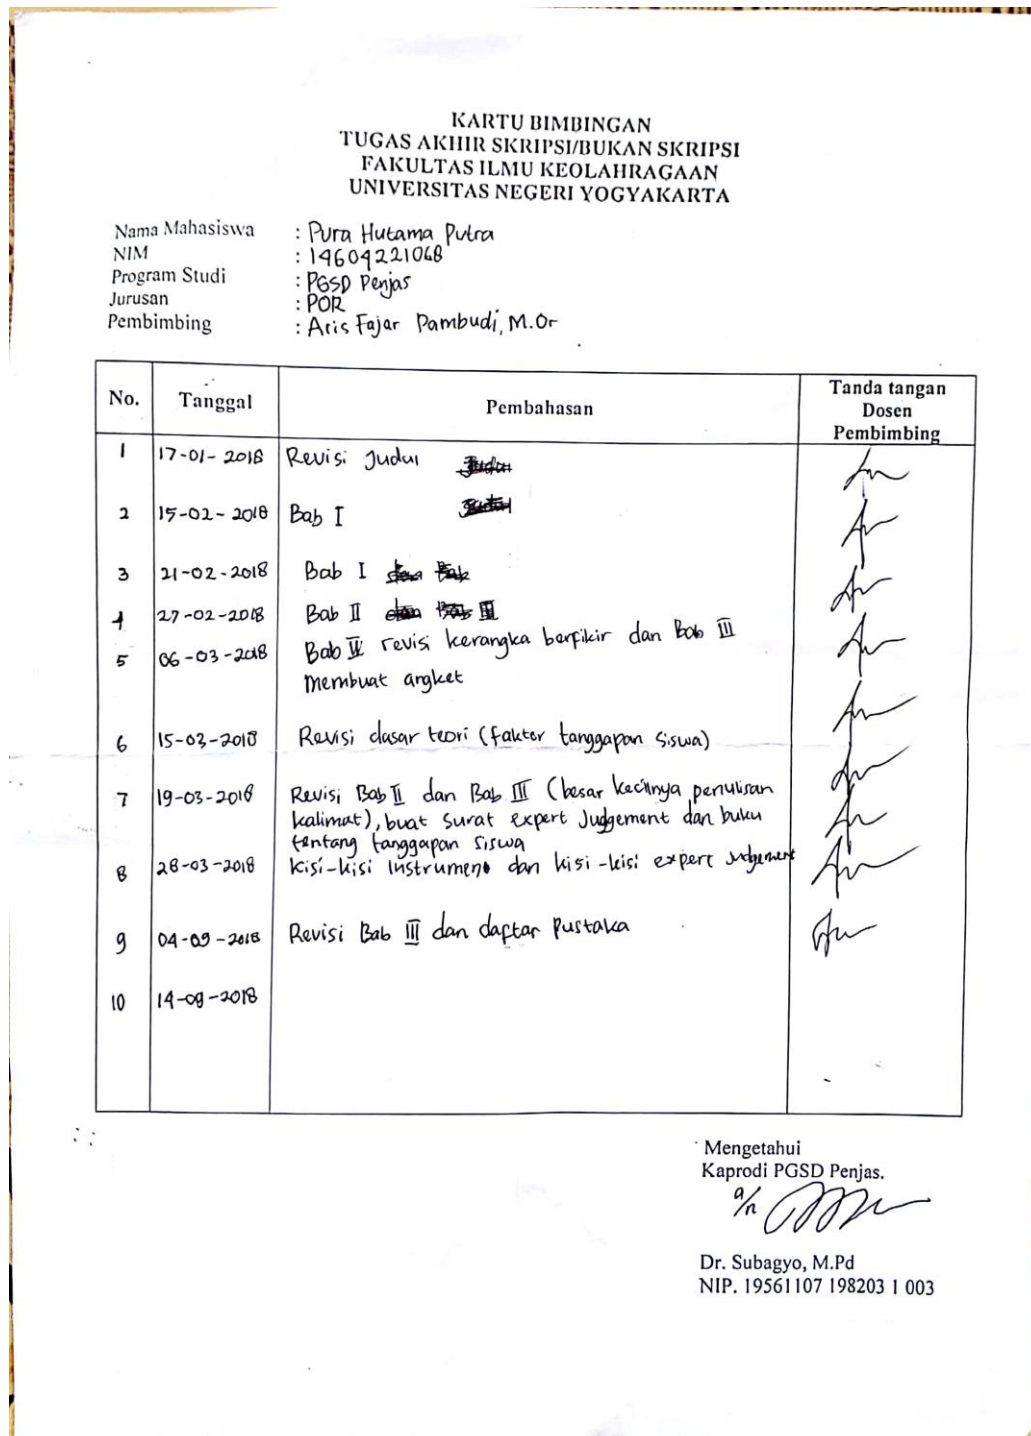 KARTU BIMBINGAN
TUGAS AKHIR SKRIPSI/BUKAN SKRIPSI
FAKULTAS ILMU KEOLAHRAGAAN
UNIVERSITAS NEGERI YOGYAKARTA
Nama Mahasiswa : Pura Hutama Putra
NIM : 14604221068
Program Studi : PGSD Penjas
Jurusan : POR
Pembimbing : Aris Fajar Pambudi, M.Or
No. Tanggal Pembahasan Tanda tangan Dosen Pembimbing
1 17-01-2018 Revisi Judul
2 15-02-2018 Bab I
3 21-02-2018 Bab I
4 27-02-2018 Bab II
5 06-03-2018 Bab II revisi kerangka berfikir dan Bab III
membuat angket
6 15-03-2018 Revisi dasar teori (faktor tanggapan siswa)
7 19-03-2018 Revisi Bab II dan Bab III (besar kecilnya penulisan
kalimat), buat surat expert Judgement dan buku
tentang tanggapan siswa
8 28-03-2018 kisi-kisi instrumen dan kisi-kisi expert judgement
9 04-09-2018 Revisi Bab III dan daftar Pustaka
10 14-09-2018
Mengetahui
Kaprodi PGSD Penjas.
a/n
Dr. Subagyo, M.Pd
NIP. 19561107 198203 1 003